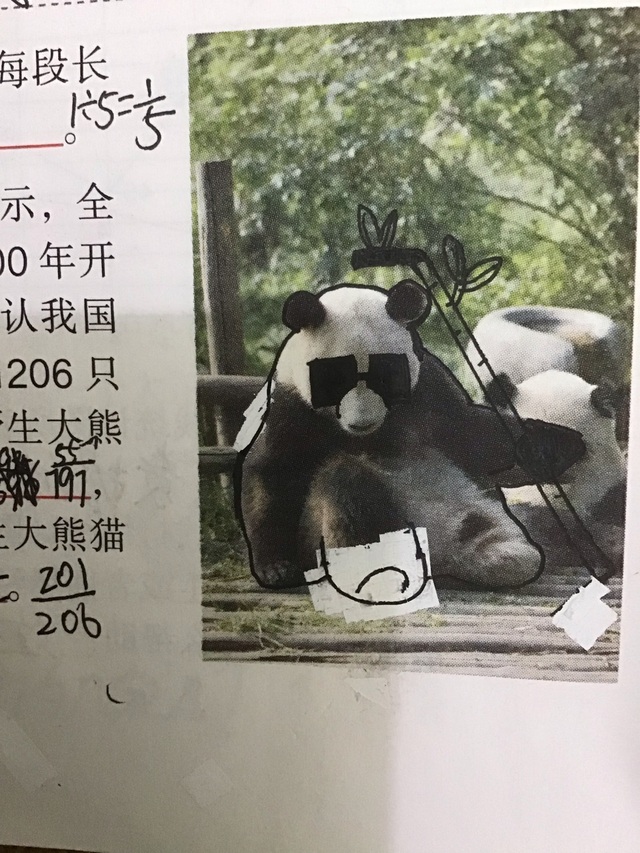 每段长
1÷5=1/5
。
示，全
00年开
认我国
1206只
野生大熊
55/197，
生大熊猫
。201/206